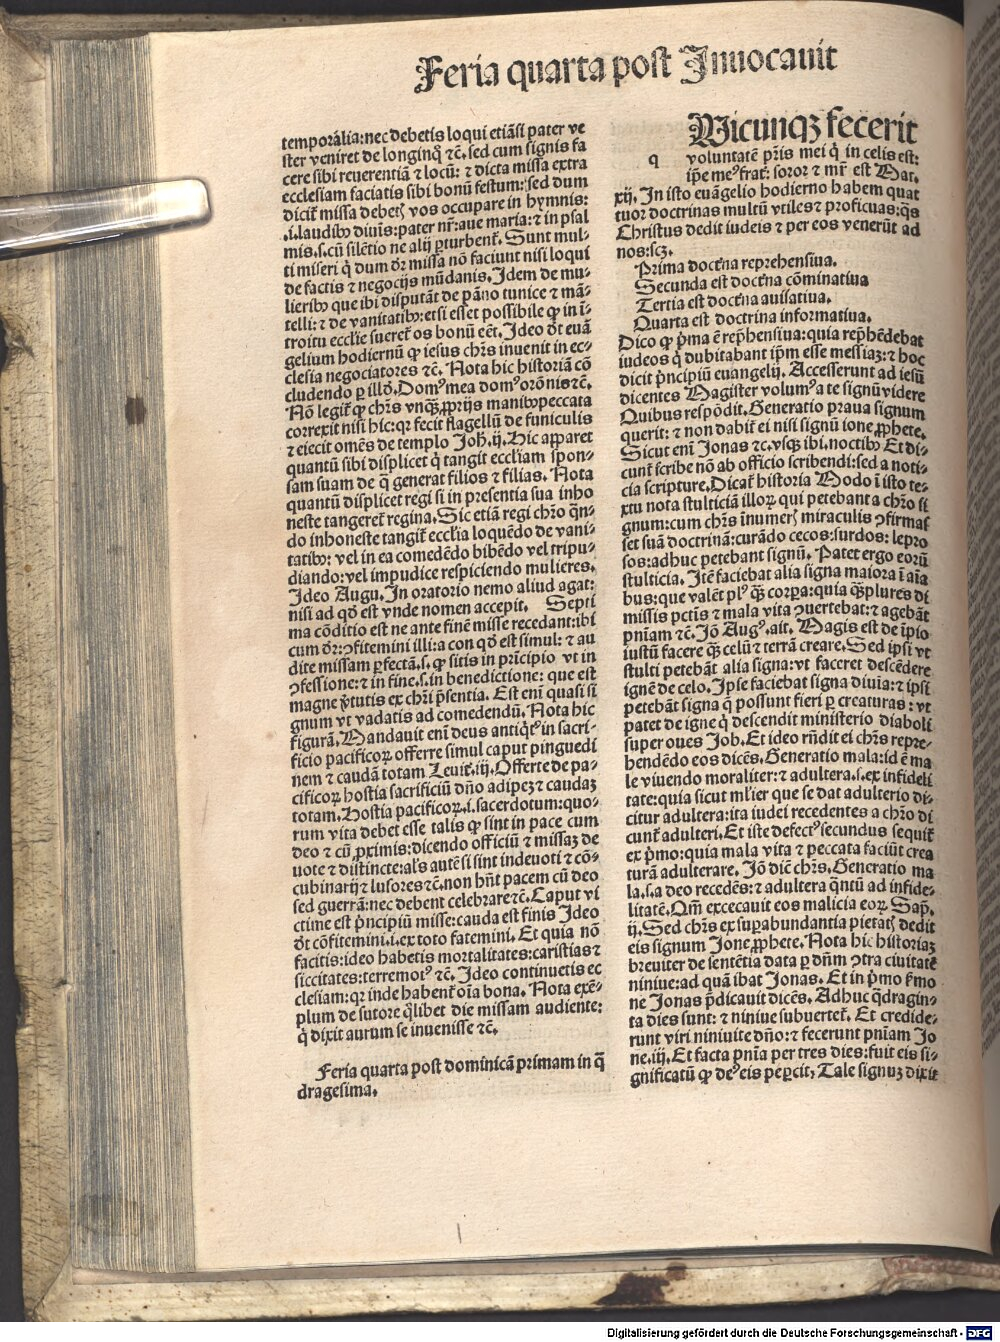 Feria quarta post Inuocauit
temporália: nec debetis loqui etiãsi pater ve
ster veniret de longinq̃ ⁊c̃. sed cum signis fa
cere sibi reuerentiã ⁊ locũ: ⁊ dicta missa extra
ecclesiam faciatis sibi bonũ festum: sed dum
dicit᷑ missa debetꝭ vos occupare in hymnis:
.i. laudibꝰ diuis: pater nr̃: aue maria: ⁊ in psal
mis. s. cũ silẽtio ne alij ꝑturbent᷑. Sunt mul⸗
ti miseri q̇ dum dr̃ missa nõ faciunt nisi loqui
de factis ⁊ negocijs mũdanis. Idem de mu⸗
lieribꝰ que ibi disputãt de pãno tunice ⁊ mã⸗
telli: ⁊ de vanitatibꝰ: etsi esset possibile ꝙ in ĩ⸗
troitu ecclĩe fuceret os bonũ eẽt. Ideo dt̃ euã
gelium hodiernũ ꝙ iesus chr̃s inuenit in ec⸗
clesia negociatores ⁊c̃. Nota hic historiã cõ
cludendo ꝑ illđ. Domꝰ mea domꝰ orõnis ⁊c̃.
Nõ legit᷑ ꝙ chr̃s vnqꝫ ꝓprijs manibꝰ peccata
correxit nisi hic: qꝛ fecit flagellũ de funiculis
⁊ eiecit omẽs de templo Joh̃. ij. Hic apparet
quantũ sibi displicet q̇ tangit eccl̃iam spon⸗
sam suam de q̃ generat filios ⁊ filias. Nota
quantũ displicet regi si in presentia sua inho
neste tangeret᷑ regina. Sic etiã regi chr̃o qñ⸗
do inhoneste tangit᷑ eccl̃ia loquẽdo de vani⸗
tatibꝰ: vel in ea comedẽdo bibẽdo vel tripu⸗
diando: vel impudice respiciendo mulieres.
Ideo Augu. In oratorio nemo aliud agat:
nisi ad qđ est vnde nomen accepit. Septi
ma cõditio est ne ante finẽ misse recedant: ibi
cum dr̃: ꝯfitemini illi: a con qđ est simul: ⁊ au
dite missam ꝑfectã. s. ꝙ sitis in prĩcipio vt in
ꝯfessione: ⁊ in fine. s. in benedictione: que est
magne ṽtutis ex chr̃i p̃sentia. Est enĩ quasi si
gnum vt vadatis ad comedendũ. Nota hic
figurã. Mandauit enĩ deus antiq̇tꝰ in sacri⸗
ficio pacificoꝝ offerre simul caput pinguedi
nem ⁊ caudã totam Leuit᷑. iij. Offerte de pa⸗
cificoꝝ hostia sacrificiũ dño adipeꝫ ⁊ caudaꝫ
totam. Hostia pacificoꝝ. i. sacerdotum: quo⸗
rum vita debet esse talis ꝙ sint in pace cum
deo ⁊ cũ ꝓximis: dicendo officiũ ⁊ missaꝫ de
uote ⁊ distincte: al̃s autẽ si sint indeuoti ⁊ cõ⸗
cubinarij ⁊ lusores ⁊c̃. non hñt pacem cũ deo
sed guerrã: nec debent celebrare ⁊c̃. Caput vi
ctime est p̃ncipiũ misse: cauda est finis Ideo
dt̃ cõfitemini. i. ex toto fatemini. Et quia nõ
facitis: ideo habetis mortalitates: caristias ⁊
siccitates: terremotꝰ ⁊c̃. Ideo continuetis ec
clesiam: qꝛ inde habent᷑ oĩa bona. Nota exẽ⸗
plum de sutore q̃libet die missam audiente:
q̇ dixit aurum se inuenisse ⁊c̃.
Feria quarta post dominicã primam in q̃
dragesima.
Uicunqꝫ fecerit
q voluntatẽ pr̃is mei q̇ in celis est:
ip̃e meꝰ frat᷑: soror ⁊ mr̃ est Mat.
xij. In isto euãgelio hodierno habem quat
tuor doctrinas multũ vtiles ⁊ proficuas: q̃s
Christus dedit iudeis ⁊ per eos venerũt ad
nos: scꝫ.
Prima doct̃na reprehensiua.
Secunda est doct̃na cõminatiua
Tertia est doct̃na auisatiua.
Quarta est doctrina informatiua.
Dico ꝙ p̃ma ẽ rep̃hensiua: quia rep̃hẽdebat
iudeos q̇ dubitabant ip̃m esse messiaꝫ: ⁊ hoc
dicit p̃ncipiũ euangelij. Accesserunt ad iesũ
dicentes Magister volumꝰ a te signũ videre
Quibus respõdit. Generatio praua signum
querit: ⁊ non dabit᷑ ei nisi signũ ione ꝓphete.
Sicut enĩ Jonas ⁊c. vsqꝫ ibi. noctibꝰ Et di⸗
cunt᷑ scribe nõ ab officio scribendi: sed a noti⸗
cia scripture. Dicat᷑ historia Modo ĩ isto te⸗
xtu nota stulticiã illoꝝ qui petebant a chr̃o si
gnum: cum chr̃s ĩnumerꝭ miraculis ꝯfirmaſ
set suã doctrinã: curãdo cecos: surdos: lepro
sos: adhuc petebant signũ. Patet ergo eorũ
stulticia. Itẽ faciebat alia signa maiora ĩ aĩa
bus: que valẽt plꝰ q̃ꝫ corpꝑa: quia q̃ꝫplures di
missis pctĩs ⁊ mala vita ꝯuertebat: ⁊ agebãt
pñiam ⁊c̃. Jõ Augꝰ. ait. Magis est de ĩpio
iustũ facere q̃ꝫ celũ ⁊ terrã creare. Sed ipsi vt
stulti petebãt alia signa: vt faceret descẽdere
ignẽ de celo. Ipse faciebat signa diuĩa: ⁊ ipsi
petebãt signa q̃ possunt fieri ꝑ creaturas: vt
patet de igne q̇ descendit ministerio diaboli
super oues Job. Et ideo rñdit ei chr̃s repre⸗
hendẽdo eos dicẽs. Generatio mala: id ẽ ma
le viuendo moraliter: ⁊ adultera. s. ex infideli
tate: quia sicut ml̃ier que se dat adulterio di⸗
citur adultera: ita iudei recedentes a chr̃o di
cunt᷑ adulteri. Et iste defectꝰ secundus sequit᷑
ex p̃mo: quia mala vita ⁊ peccata faciũt crea
turã adulterare. Jõ diẽ chr̃s. Generatio ma
la. s. a deo recedẽs: ⁊ adultera q̃ntũ ad infide⸗
litatẽ. Qm̃ excecauit eos malicia eoꝝ Sap̃.
ij. Sed chr̃s ex suꝑabundantia pietatꝭ dedit
eis signum Jone ꝓphete. Nota hic historiaꝫ
breuiter de sentẽtia data ꝑ dñm ꝯtra ciuitatẽ
niniue: ad quã ibat Jonas. Et in p̃mo ẜmo
ne Jonas p̃dicauit dicẽs. Adhuc q̃dragin⸗
ta dies sunt: ⁊ niniue subuertet᷑. Et credide⸗
runt viri niniuite dño: ⁊ fecerunt pniam Jo
ne. iij. Et facta pnĩa per tres dies: fuit eis si⸗
gnificatũ ꝙ deꝰ eis peꝑcit; Tale signuꝫ dixit
Digitalisierung gefördert durch die Deutsche Forschungsgemeinschaft - DFG